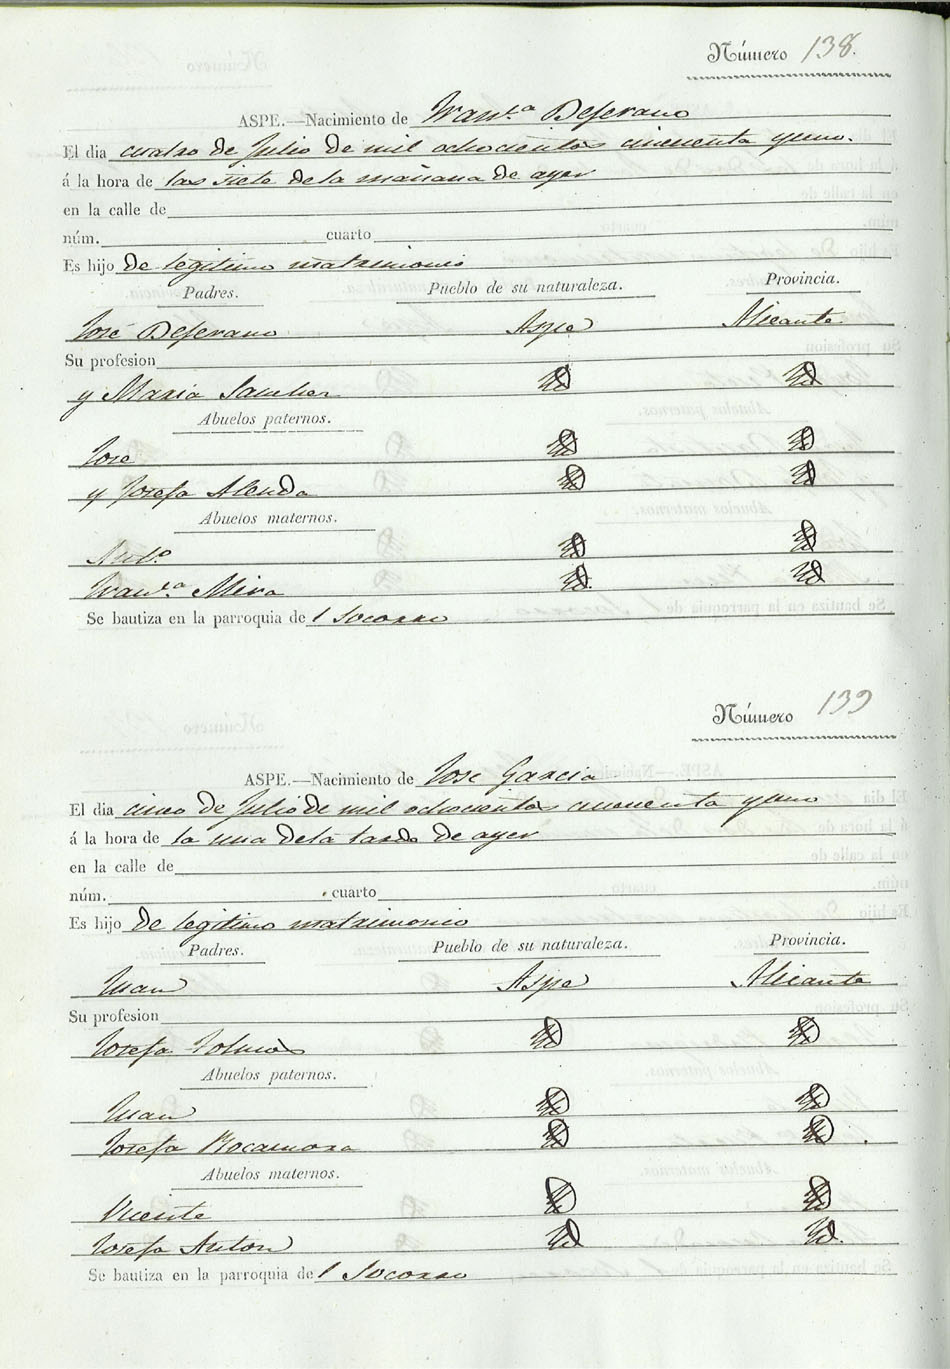 Número 138.
ASPE.—Nacimiento de Fran.ca Deferano
El dia cuatro de Julio de mil ochocientos cincuenta y uno.
á la hora de las siete de la mañana de ayer
en la calle de
núm. cuarto
Es hijo de legitimo matrimonio
Padres. Pueblo de su naturaleza. Provincia.
José Deferano Aspe Alicante
Su profesion
y Maria Sanchez Yd Yd
Abuelos paternos.
Jose Yd Yd
y Josefa Alenda Yd Yd
Abuelos maternos.
Yd Yd
Fran.ca Mira Yd Yd
Se bautiza en la parroquia de l Socorro
Número 139
ASPE.—Nacimiento de Jose Garcia
El dia cinco de Julio de mil ochocientos cincuenta y uno
á la hora de la una de la tarde de ayer
en la calle de
núm. cuarto
Es hijo de legitimo matrimonio
Padres. Pueblo de su naturaleza. Provincia.
Juan Aspe Alicante
Su profesion
Josefa Yd Yd
Abuelos paternos.
Juan Yd Yd
Josefa Rocamora Yd Yd
Abuelos maternos.
Vicente Yd Yd
Josefa Anton Yd Yd.
Se bautiza en la parroquia de l Socorro